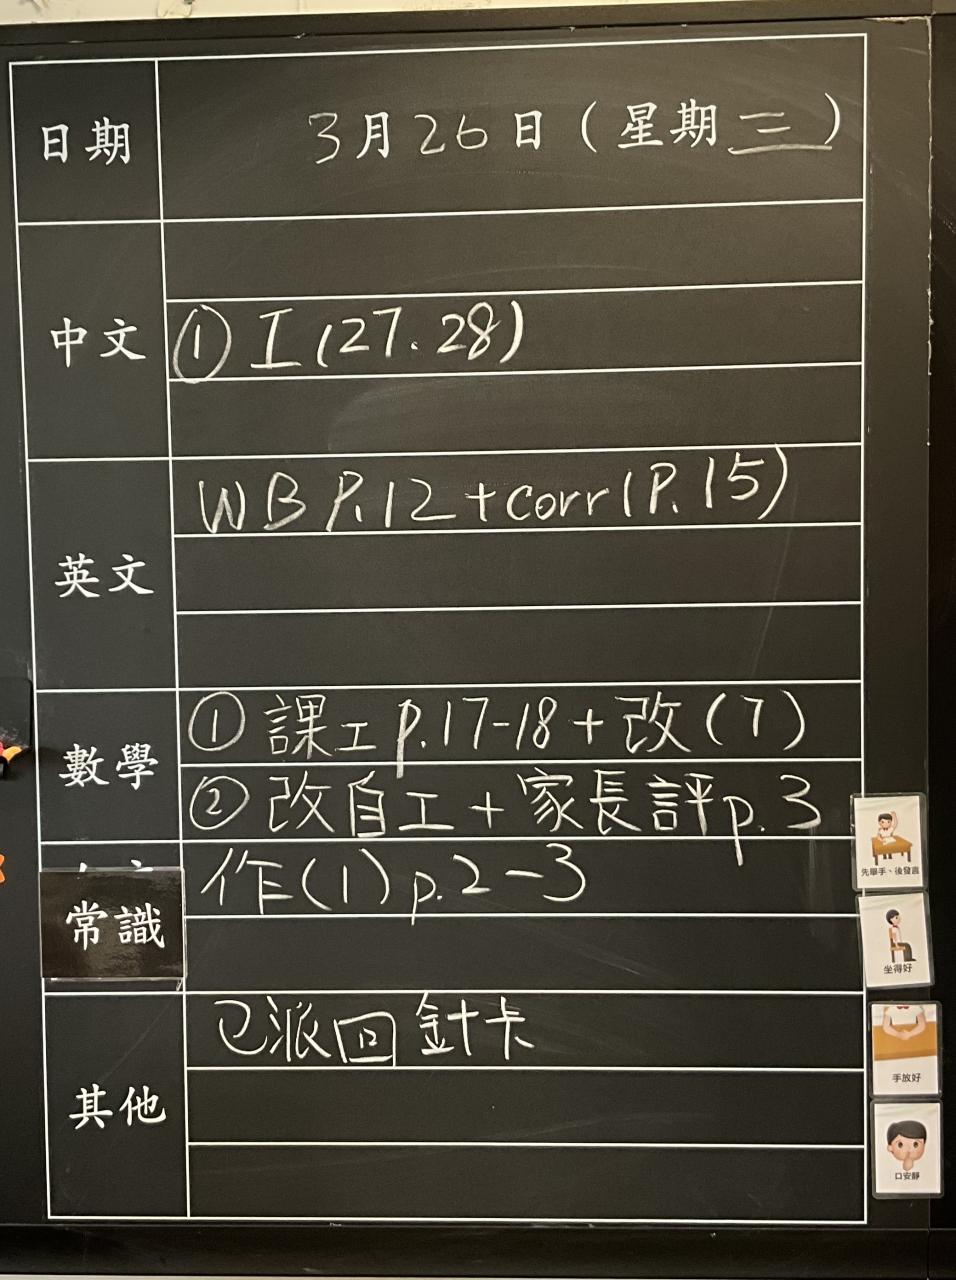 日期
3月26日（星期三）
中文
① 工(27.28)
英文
WB P.12+corr(P.15)
數學
① 課工 p.17-18+改(7)
② 改自工+家長評p.3
常識
作(1)p.2-3
其他
已派回針卡
先舉手、後發言
坐得好
手放好
口安靜